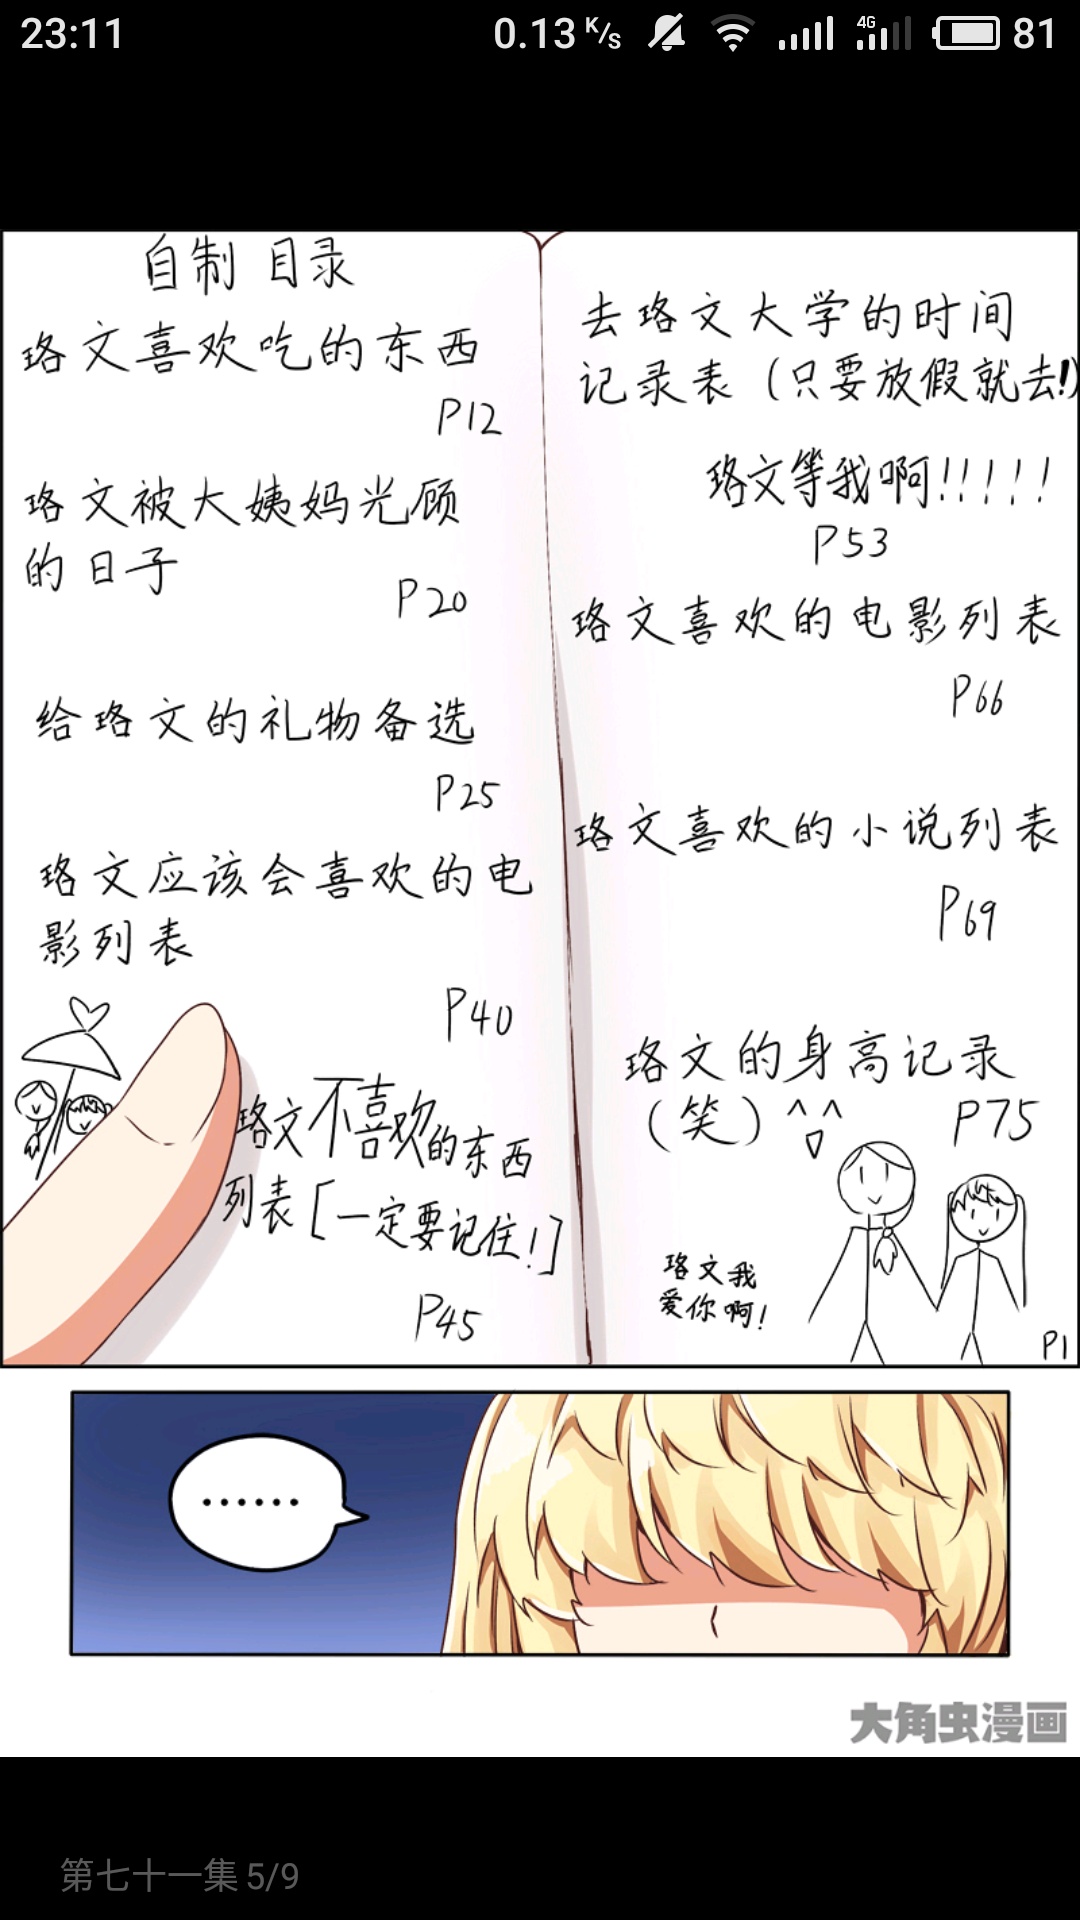 23:11
0.13 K/s
4G
81
自制 目录
珞文喜欢吃的东西
P12
珞文被大姨妈光顾
的日子
P20
给珞文的礼物备选
P25
珞文应该会喜欢的电
影列表
P40
珞文不喜欢的东西
列表[一定要记住!]
P45
去珞文大学的时间
记录表（只要放假就去!）
珞文等我啊!!!!!
P53
珞文喜欢的电影列表
P66
珞文喜欢的小说列表
P69
珞文的身高记录
（笑）^ ^
P75
珞文我
爱你啊!
P1
······
大角虫漫画
第七十一集 5/9